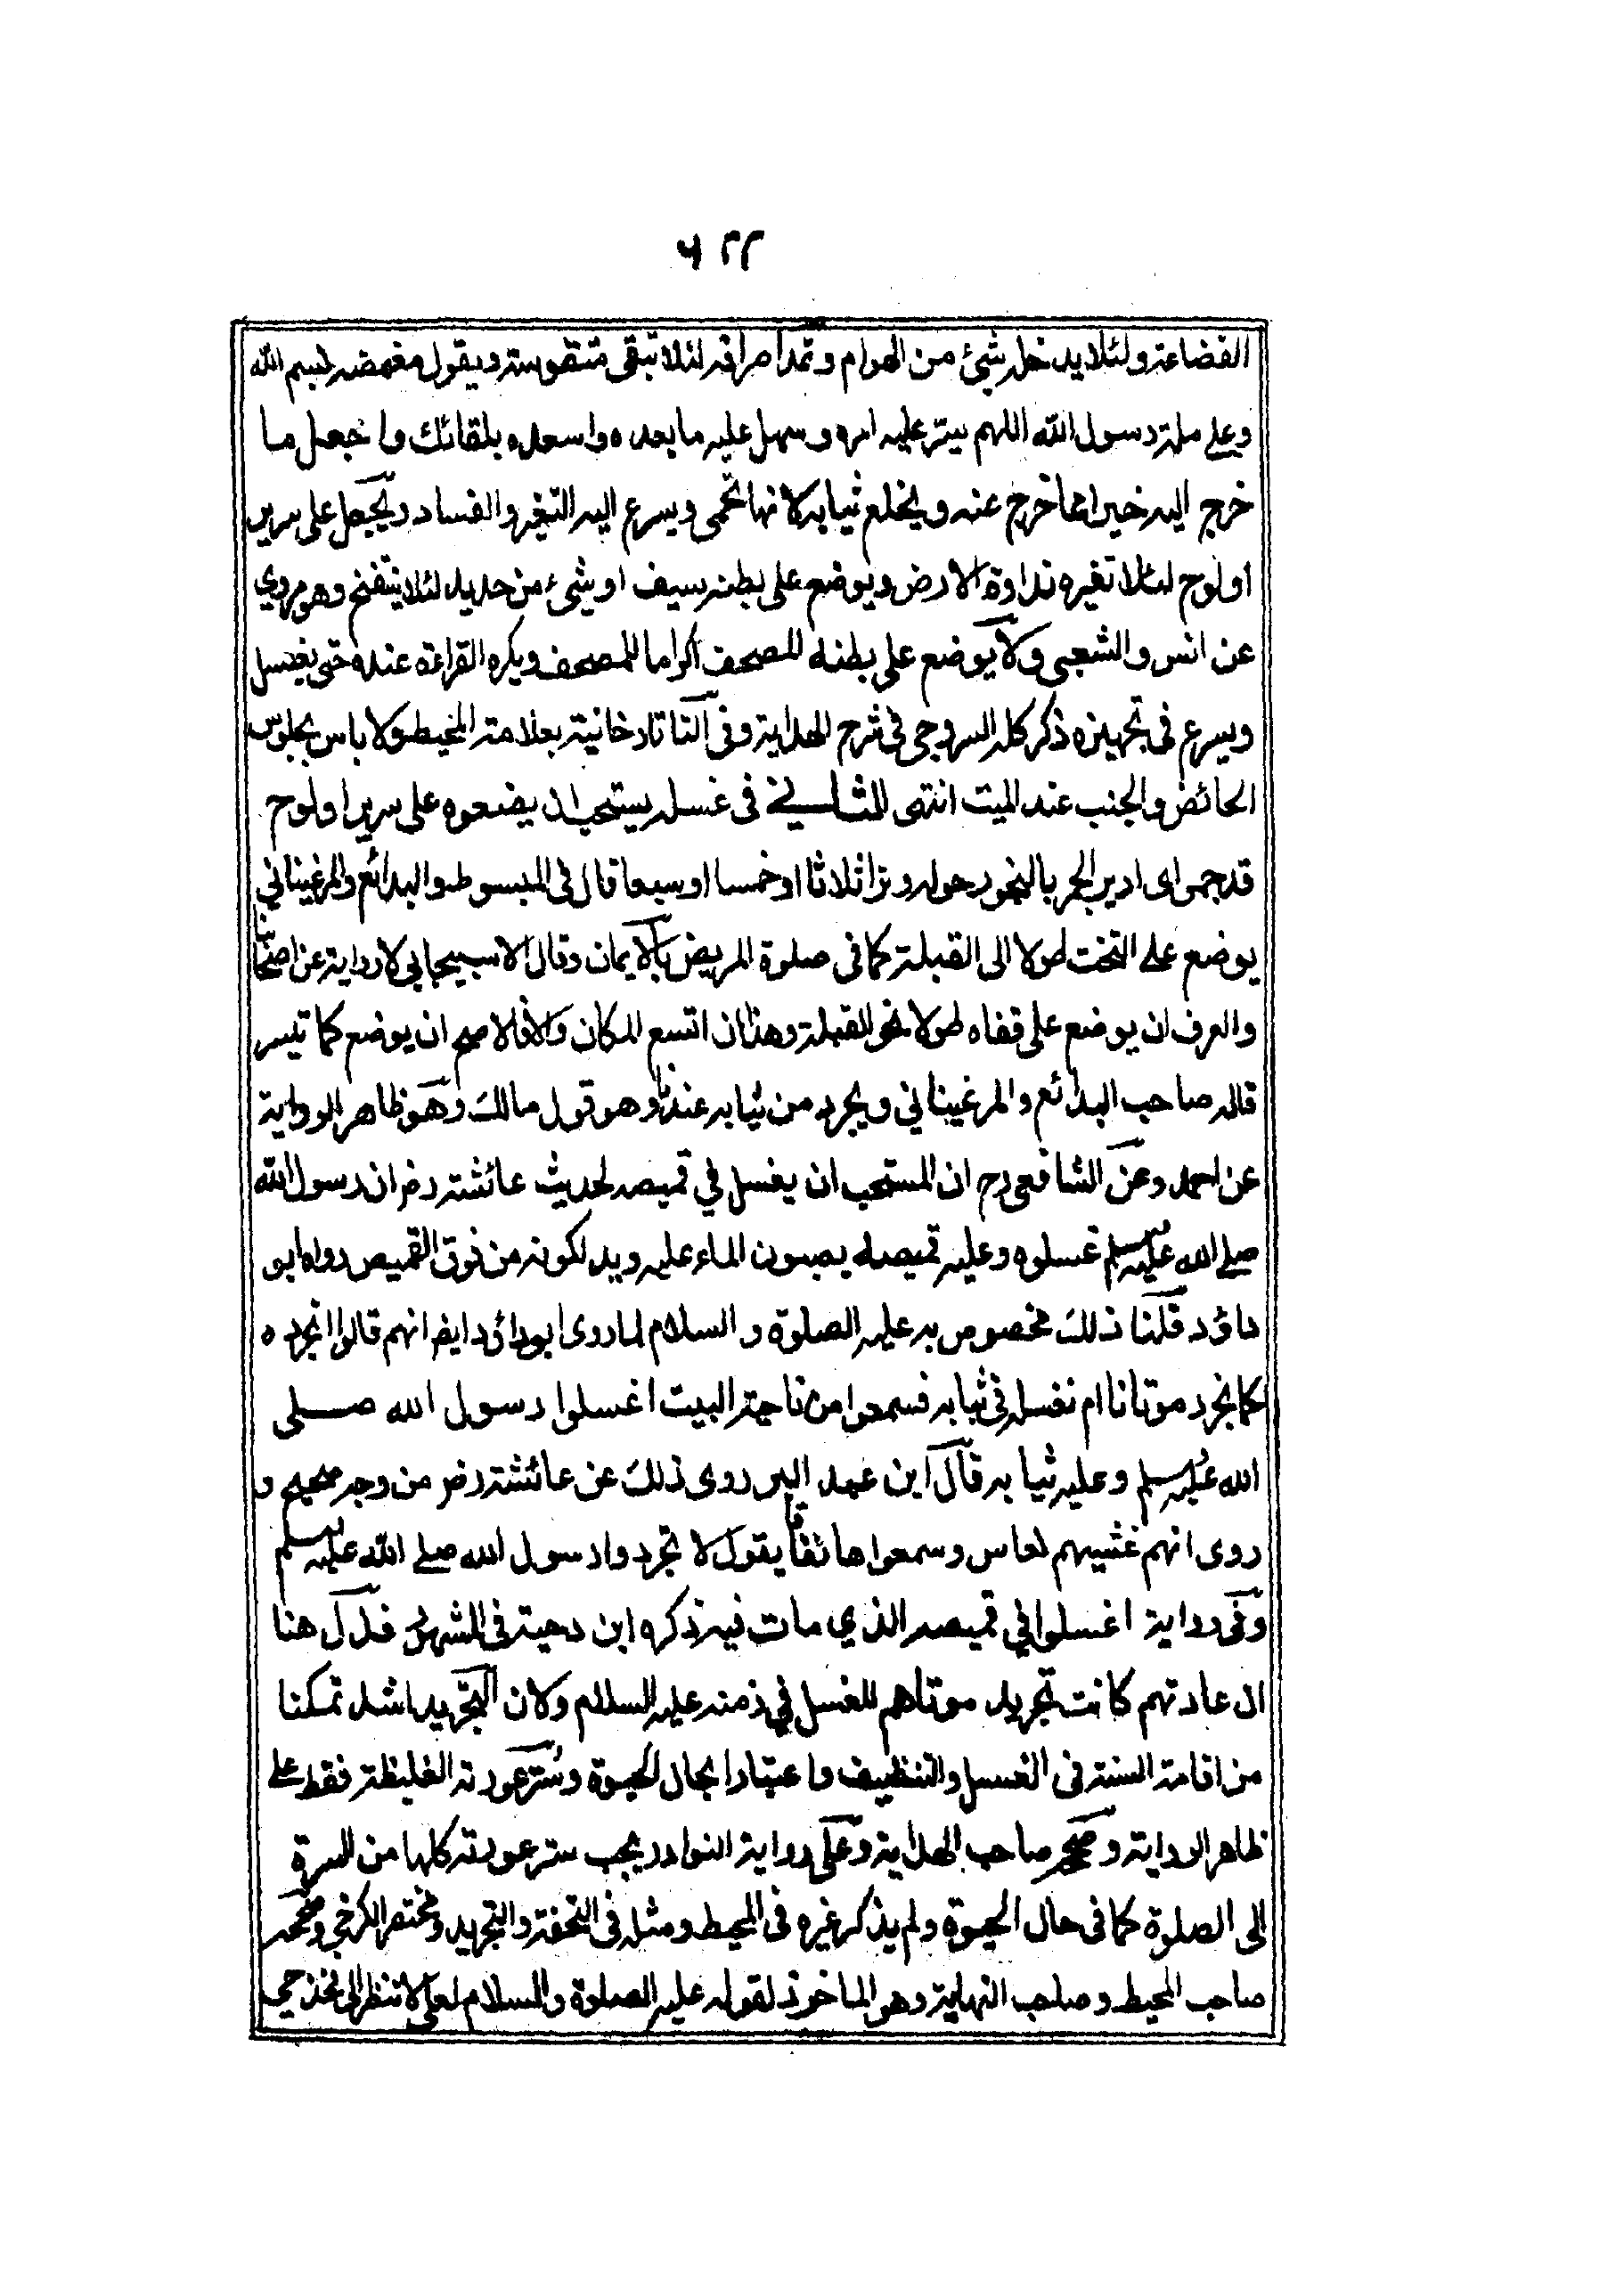 ٦٢٢
الفضاعة ولئلا يدخله شئ من الهوام وتمد اطرافه لئلا تبقى متقوسة ويقول مغمضه بسم الله
وعلى ملة رسول الله اللهم يسر عليه امره وسهل عليه ما بعده واسعده بلقائك واجعل ما
خرج اليه خيرا مما خرج عنه ويخلع ثيابه لانها تحمى ويسرع اليه التغير والفساد ويجعل على سرير
او لوح لئلا تغيره نداوة الارض ويوضع على بطنه سيف او شئ من حديد لئلا ينتفخ وهو مروي
عن انس والشعبى ولا يوضع على بطنه المصحف اكراما للمصحف ويكره القراءة عنده حتى يغسل
ويسرع فى تجهيزه ذكر كله السروجى فى شرح الهداية وفى التاتارخانية بعلامة المحيط ولا باس بجلوس
الحائض والجنب عند الميت انتهى الثانى فى غسله يستحب ان يضعوه على سرير او لوح
قد جمر اى ادير الجمر بالبخور حوله وترا ثلاثا او خمسا او سبعا قال فى المبسوط والبدائع والمرغيناني
يوضع على التخت طولا الى القبلة كما فى صلوة المريض بالايمان وقال الاسبيجابى لا رواية عن اصحابنا
والعرف ان يوضع على قفاه طولا نحو القبلة وهذا ان اتسع المكان والا فالاصح ان يوضع كما تيسر
قاله صاحب البدائع والمرغيناني ويجرد من ثيابه عندنا وهو قول مالك وهو ظاهر الرواية
عن احمد وعن الشافعى رح ان المستحب ان يغسل في قميصه لحديث عائشة رض ان رسول الله
صلى الله عليه وسلم غسلوه وعليه قميصه يصبون الماء عليه ويدلكونه من فوق القميص رواه ابو
داؤد قلنا ذلك مخصوص به عليه الصلوة والسلام لما روى ابو داؤد ايضا انهم قالوا انجرده
كما نجرد موتانا ام نغسله فى ثيابه فسمعوا من ناحية البيت اغسلوا رسول الله صلى
الله عليه وسلم وعليه ثيابه قال ابن عبد البر روى ذلك عن عائشة رض من وجه صحيح و
روى انهم غشيهم نعاس وسمعوا هاتفا يقول لا تجردوا رسول الله صلى الله عليه وسلم
وفى رواية اغسلوا في قميصه الذي مات فيه ذكره ابن دحية فى فدل هنا
ان عادتهم كانت تجريد موتاهم للغسل في زمنه عليه السلام ولان التجريد اشد تمكنا
من اقامة السنة فى الغسل والتنظيف واعتبارا بحال الحيوة وستر عورته الغليظة فقط على
ظاهر الرواية وصححه صاحب الهداية وعلى رواية النوادر يجب ستر عورته كلها من السرة
الى الصلوة كما فى حال الحيوة ولم يذكر غيره فى المحيط ومثله فى التحفة والتجريد ومختصر الكرخي وصححه
صاحب المحيط وصاحب النهاية وهو الماخوذ لقوله عليه الصلوة والسلام لعلى لا تنظر الى فخذ حي